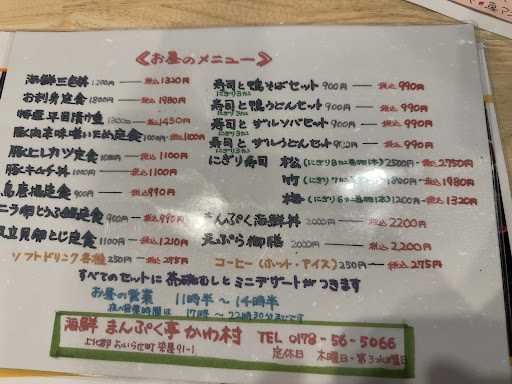 《お昼のメニュー》
海鮮三色丼 1200円 税込1320円
お刺身定食 1800円 税込1980円
特選平目漬け重 1300円 税込1430円
豚肉辛味噌いため定食 1000円 税込1100円
豚ヒレカツ定食 税込1100円
豚キムチ丼 1000円 税込1100円
鳥唐揚定食 900円 税込990円
ニラ卵とうふ 定食 900円 税込990円
貝卵とじ定食 1100円 税込1210円
ソフトドリンク各種 250円 税込275円
寿司と鴨そばセット 900円 税込990円
にぎり3カン
寿司と鴨うどんセット 900円 税込990円
にぎり3カン
寿司とザルソバセット 900円 税込990円
にぎり3カン
寿司とザルうどんセット 税込990円
にぎり3カン
にぎり寿司 松(にぎり8カン巻物1本) 2500円 税込2750円
竹(にぎり7カン 税込1980円
梅(にぎり6カン巻物1本) 1200円 税込1320円
まんぷく海鮮丼 2000円 税込2200円
天ぷら御膳 2000円 税込2,200円
コーヒー(ホット・アイス) 250円 税込275円
すべてのセットに茶碗むしとミニデザートがつきます
お昼の営業 11時半〜14時半
夜の営業時間は 17時〜22時30分までです
海鮮 まんぷく亭 かわ村 TEL 0178-56-5066
上北郡おいらせ町染屋91-1 定休日 木曜日・第3水曜日